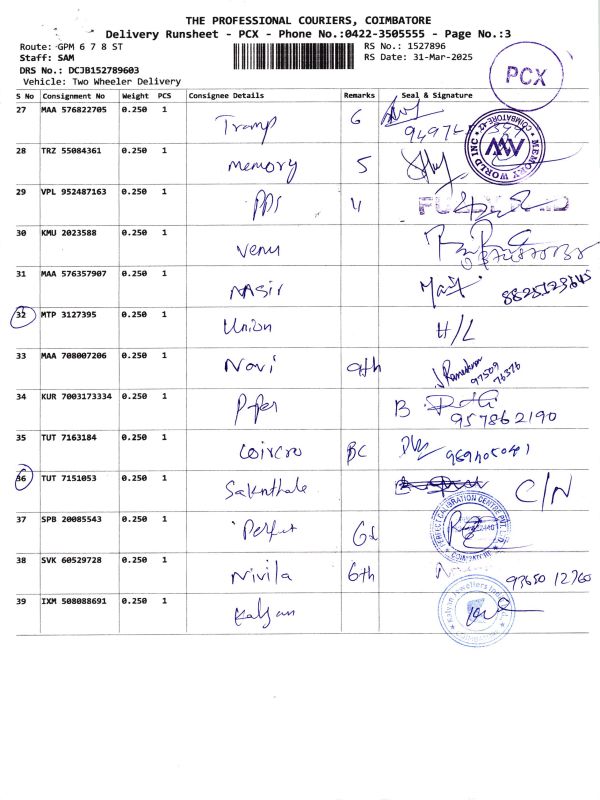 THE PROFESSIONAL COURIERS, COIMBATORE
Delivery Runsheet - PCX - Phone No.:0422-3505555 - Page No.:3
Route: GPM 6 7 8 ST
RS No.: 1527896
Staff: SAM
RS Date: 31-Mar-2025
DRS No.: DCJB152789603
Vehicle: Two Wheeler Delivery
PCX
S No Consignment No Weight PCS Consignee Details Remarks Seal & Signature
27 MAA 576822705 0.250 1 Tramp 6
28 TRZ 55084361 0.250 1 memory 5
MEMORY WORLD INC COIMBATORE
29 VPL 952487163 0.250 1 PPS 4
30 KMU 2023588 0.250 1 Venu
31 MAA 576357907 0.250 1 NASir
32 MTP 3127395 0.250 1 Union H/L
33 MAA 708007206 0.250 1 Novi 9th
97509
76376
34 KUR 7003173334 0.250 1 B
957862190
35 TUT 7163184 0.250 1 BC
36 TUT 7151053 0.250 1 C/N
37 SPB 20085543 0.250 1 Perfect
PERFECT CALIBRATION CENTRE PVT. LTD.
38 SVK 60529728 0.250 1 Nivila 6th 93650 12760
39 IXM 508088691 0.250 1 Kalyan